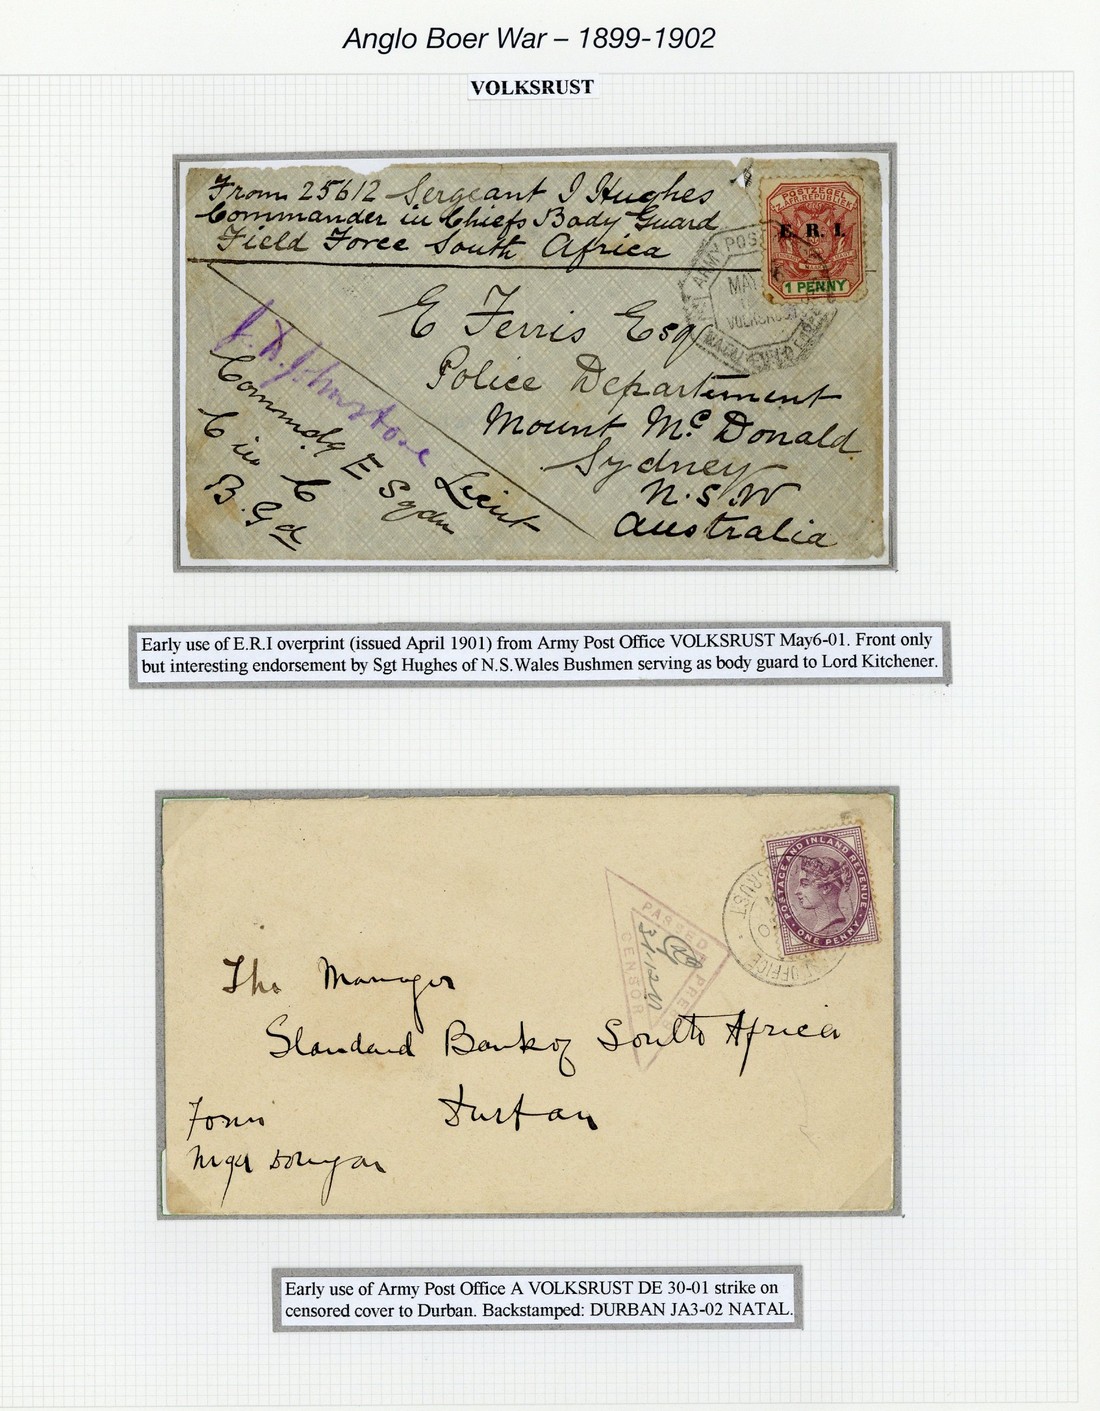 Anglo Boer War – 1899-1902
VOLKSRUST
From 25612 Sergeant J Hughes
Commander in Chiefs Body Guard
Field Force South Africa
POSTZEGEL
Z. AFR. REPUBLIEK
E. R. I.
1 PENNY
ARMY POS
MAY
VOLKSRUST
NATAL FIELD FORCE
E Ferris Esq
Police Department
Mount Mc Donald
Sydney
N.S.W
Australia
Johnstone Lieut
Commdg E Sqdn
C in C
B. Gd
Early use of E.R.I overprint (issued April 1901) from Army Post Office VOLKSRUST May6-01. Front only
but interesting endorsement by Sgt Hughes of N.S.Wales Bushmen serving as body guard to Lord Kitchener.
POSTAGE AND INLAND REVENUE
ONE PENNY
RUST
OFFICE
PASSED
PRESS
CENSOR
31.12.01
The Manager
Standard Bank of South Africa
Durban
From
Early use of Army Post Office A VOLKSRUST DE 30-01 strike on
censored cover to Durban. Backstamped: DURBAN JA3-02 NATAL.